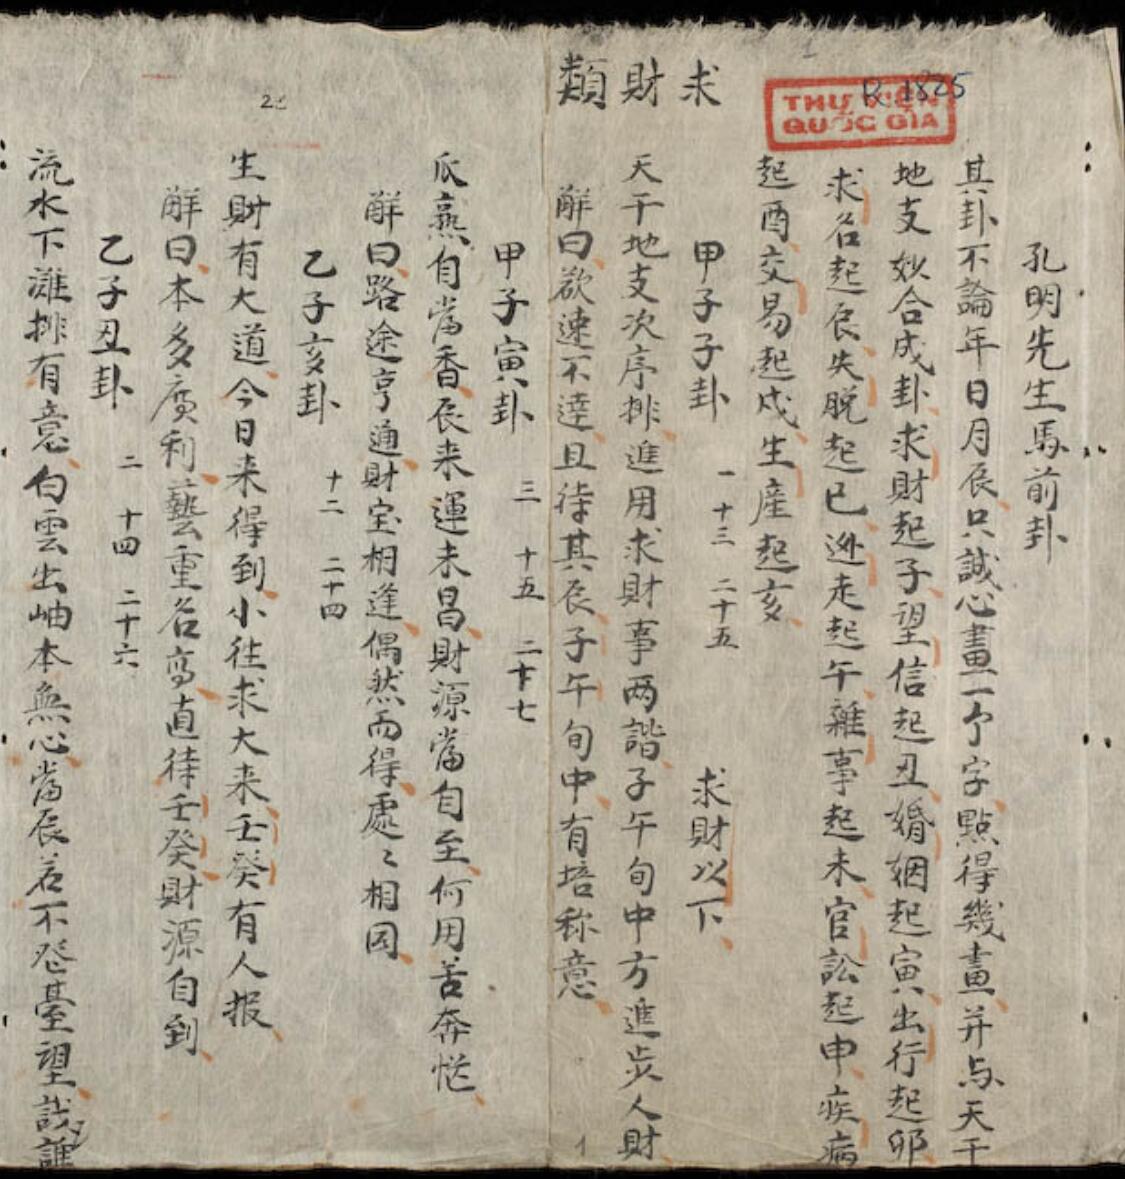 R.1825
THƯ VIỆN
QUỐC GIA
孔明先生馬前卦
其卦不論年日月辰只誠心畫一个字點得幾畫并与天干
地支妙合成卦求財起子望信起丑婚姻起寅出行起卯
求名起辰失脫起巳逊走起午雜事起未官訟起申疾病
起酉交易起戍生産起亥
求財類
甲子子卦 一 十三 二十五 求財以下
天干地支次序排進用求財事两諧子午旬中方進步人財
解曰欲速不逹且待其辰子午旬中有培称意
甲子寅卦 三 十五 二十七
瓜熟自當香辰来運未昌財源當自至何用苦奔忙
解曰路途亨通財宝相逢偶然而得處〻相因
乙子亥卦 十二 二十四
生財有大道今日来得到小往求大来壬癸有人报
解曰本多廣利藝重名高直待壬癸財源自到
乙子丑卦 二 十四 二十六
流水下灘排有意白雲出岫本無心當辰若不登臺望誰
22